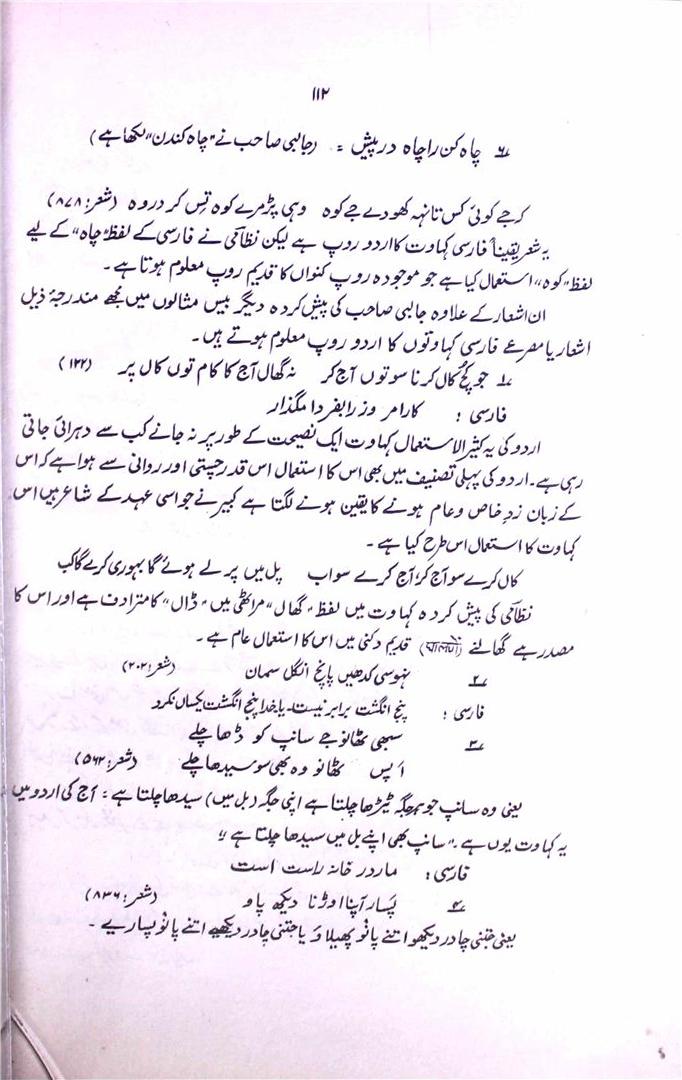 ۱۱۲
۶؎ چاہ کن را چاہ در پیش = (جالبی صاحب نے "چاہ کندن" لکھا ہے)
کر جے کوئی کس تانہہ کھودے جے کوہ وہی پڑ مرے کوہ تِس کر دروہ (شعر: ۸۷۸)
یہ شعر یقیناً فارسی کہاوت کا اردو روپ ہے لیکن نظامی نے فارسی کے لفظ "چاہ" کے لیے
لفظ "کوہ" استعمال کیا ہے جو موجودہ روپ کنواں کا قدیم روپ معلوم ہوتا ہے۔
ان اشعار کے علاوہ جالبی صاحب کی پیش کردہ دیگر بیس مثالوں میں مجھے مندرجۂ ذیل
اشعار یا مصرعے فارسی کہاوتوں کا اردو روپ معلوم ہوتے ہیں۔
۱؎ جو کچُ کال کرنا سو توں آج کر نہ گھال آج کا کام توں کال پر (۱۲۲)
فارسی: کار امروز را بفردا مگذار
اردو کی یہ کثیر الاستعمال کہاوت ایک نصیحت کے طور پر نہ جانے کب سے دہرائی جاتی
رہی ہے۔ اردو کی پہلی تصنیف میں بھی اس کا استعمال اس قدر چستی اور روانی سے ہوا ہے کہ اس
کے زبان زدِ خاص و عام ہونے کا یقین ہونے لگتا ہے کبیر نے جو اسی عہد کے شاعر ہیں اس
کہاوت کا استعمال اس طرح کیا ہے۔
کال کرے سو آج کر، آج کرے سو اب پل میں پر لے ہوئے گا بہوری کرے گا کب
نظامی کی پیش کردہ کہاوت میں لفظ "گھال" مراٹھی میں "ڈال" کا مترادف ہے اور اس کا
مصدر ہے گھالنے (घालणें) قدیم دکنی میں اس کا استعمال عام ہے۔
۲؎ نہوسی کدھیں پانچ انگل سمان (شعر: ۲۰۲)
فارسی: پنج انگشت برابر نیست۔ یا خدا پنج انگشت یکساں نکرد
۳؎ سبھی ٹھانو جے سانپ کو ڈھا چلے
اَپس ٹھانو وہ بھی سو سیدھا چلے (شعر: ۵۶۲)
یعنی وہ سانپ جو ہر جگہ ٹیڑھا چلتا ہے اپنی جگہ (بل میں) سیدھا چلتا ہے: آج کی اردو میں
یہ کہاوت یوں ہے۔ "سانپ بھی اپنے بل میں سیدھا چلتا ہے"
فارسی: مار در خانہ راست است
۴؎ پَسار آپنا اوڑنا دیکھ پاو (شعر: ۸۳۶)
یعنی جتنی چادر دیکھو اتنے پانو پھیلاؤ یا جتنی چادر دیکھیے اتنے پانو پساریے۔